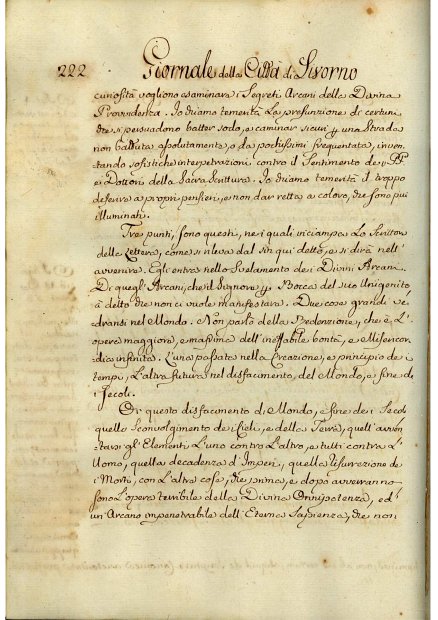 222 Giornale della Città di Livorno
curiosità vogliono esaminare i Segreti Arcani della Divina
Provvidenza. Io chiamo temerità la presunzione di certuni,
che si persuadono batter sodo, e caminar sicuri p una Strada
non battuta assolutamente, o da pochissimi frequentata, inven
tando sofistiche interpretrazioni contro il Sentimento de
e Dottori della Sacra Scrittura. Io chiamo temerità il troppo
deferire a proprj pensieri, e non dar retta a coloro, che sono più
illuminati.
Tre punti, sono questi, ne i quali inciampa Lo Scrittore
della Lettera, come si rileva dal sin qui detto, e si dirà nell'
avvenire. Egli entra nello svelamento de i Divini Arcani.
Di quegli Arcani, che il Signore p Bocca del suo Unigenito
à detto che non ci vuole manifestare. Due cose grandi ve
dransi nel Mondo. Non parlo della Redenzione, che è L'
opera maggiore, e massima dell'ineffabile bontà, e Misericor
dia infinita. L'una passata nella Creazione, e principio de i
tempi, L'altra futura nel disfacimento del Mondo, e fine de
i Secoli.
Or questo disfacimento di Mondo, e fine de i Secoli
quello Sconvolgimento de i Cieli, e della Terra, quell'avven
tarsi gl'Elementi L'uno contro L'altro, e tutti contra L'
Uomo, quella decadenza d'Imperi, quella risurrezione de
i Morti, con L'altre cose, che prima, e dopo avverranno
sono L'opera terribile della Divina Onnipotenza, ed
un'Arcano impenetrabile dell'Eterna Sapienza, che non